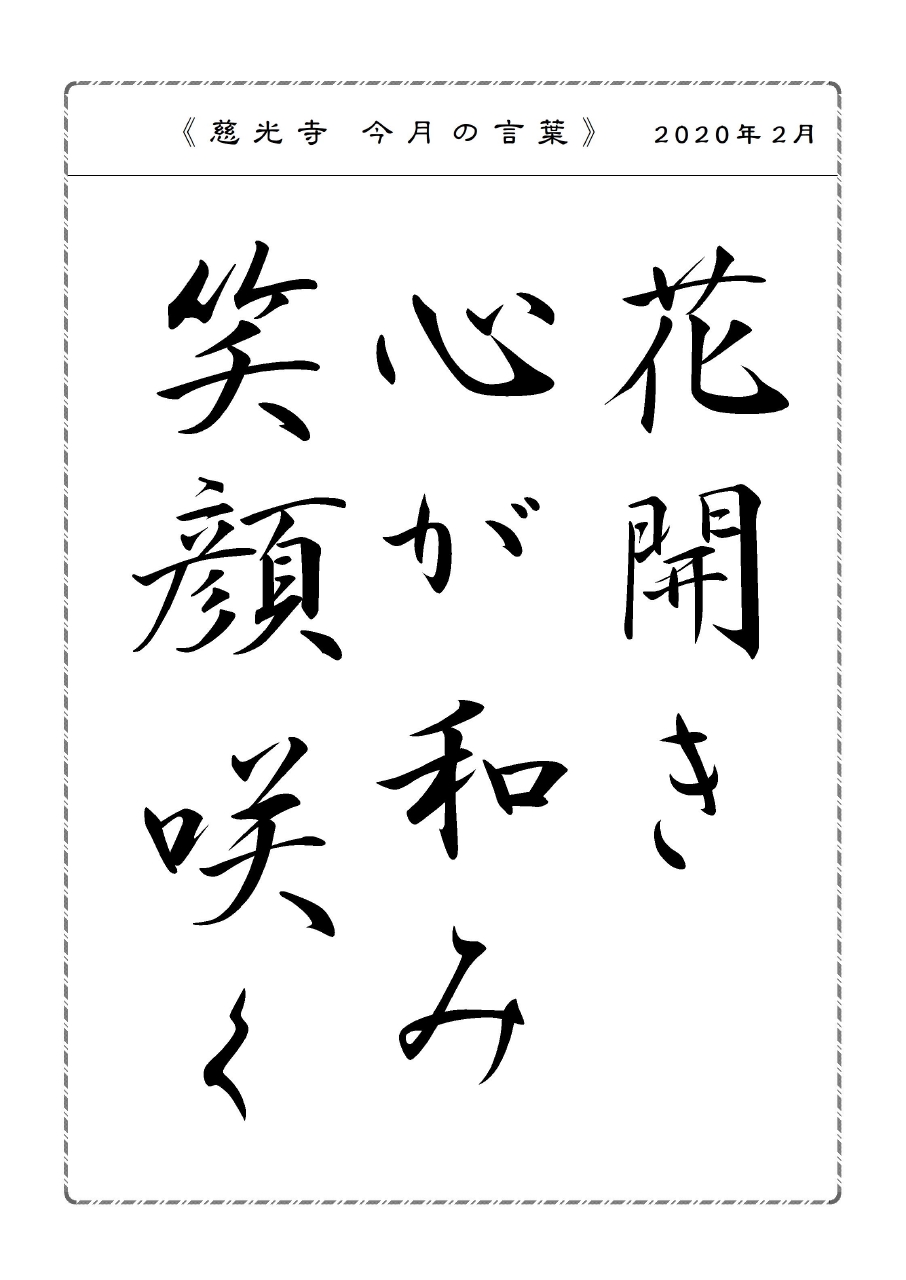 《慈光寺 今月の言葉》 2020年2月
花開き
心が和み
笑顔咲く